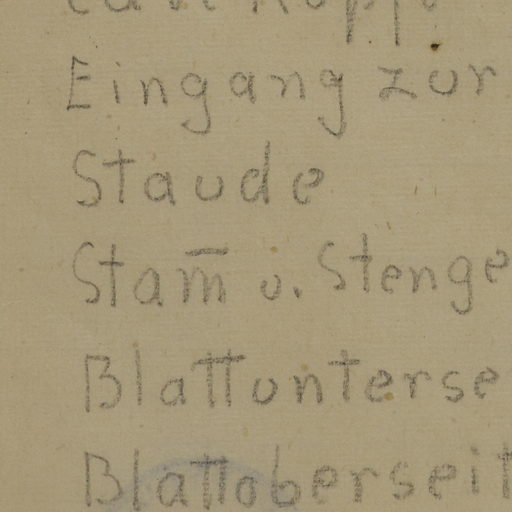 Eingang zur
Staude
Stam̅ u. Stenge
Blattunterse
Blattoberseit